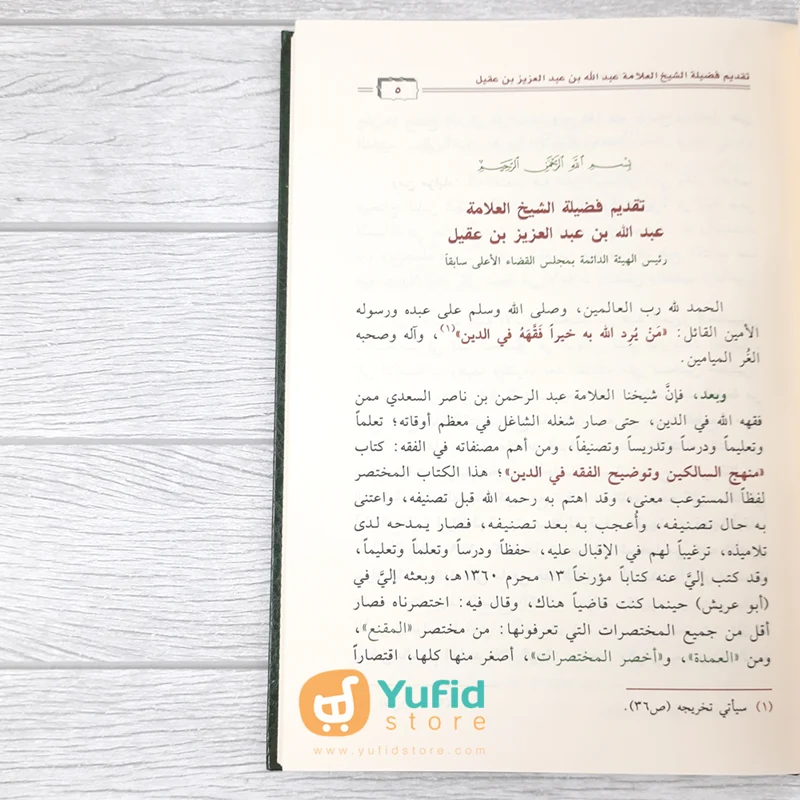 تقديم فضيلة الشيخ العلامة عبد الله بن عبد العزيز بن عقيل
٥
بسم الله الرحمن الرحيم
تقديم فضيلة الشيخ العلامة
عبد الله بن عبد العزيز بن عقيل
رئيس الهيئة الدائمة بمجلس القضاء الأعلى سابقاً
الحمد لله رب العالمين، وصلى الله وسلم على عبده ورسوله
الأمين القائل: «مَنْ يُرِد الله به خيراً فَقَّهَهُ في الدين»(١)، وآله وصحبه
الغُر الميامين.
وبعد، فإنَّ شيخنا العلامة عبد الرحمن بن ناصر السعدي ممن
فقهه الله في الدين، حتى صار شغله الشاغل في معظم أوقاته؛ تعلماً
وتعليماً ودرساً وتدريساً وتصنيفاً، ومن أهم مصنفاته في الفقه: كتاب
«منهج السالكين وتوضيح الفقه في الدين»؛ هذا الكتاب المختصر
لفظاً المستوعب معنى، وقد اهتم به رحمه الله قبل تصنيفه، واعتنى
به حال تصنيفه، وأُعجب به بعد تصنيفه، فصار يمدحه لدى
تلاميذه، ترغيباً لهم في الإقبال عليه، حفظاً ودرساً وتعلماً وتعليماً،
وقد كتب إليَّ عنه كتاباً مؤرخاً ١٣ محرم ١٣٦٠هـ، وبعثه إليَّ في
(أبو عريش) حينما كنت قاضياً هناك، وقال فيه: اختصرناه فصار
أقل من جميع المختصرات التي تعرفونها: من مختصر «المقنع»،
ومن «العمدة»، و«أخصر المختصرات»، أصغر منها كلها، اقتصاراً
(١) سيأتي تخريجه (ص٣٦).
Yufid
store
www.yufidstore.com